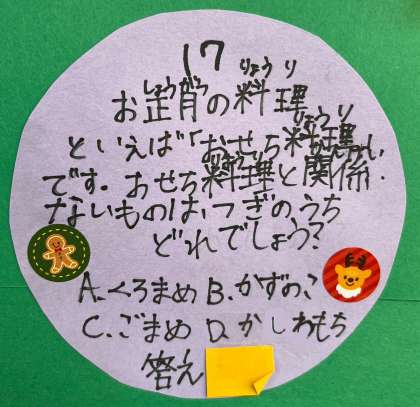 17
しょうがつ りょうり
お正月の料理
りょうり
といえば「おせち料理
りょうり かんけい
です。おせち料理と関係
ないものは、つぎのうち
どれでしょう?
A.くろまめ B.かずのこ
C.ごまめ D.かしわもち
答え